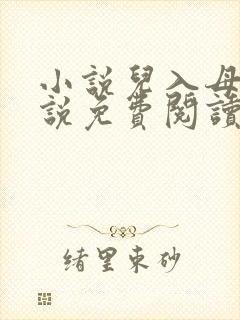 小說兒入母
說免費閱讀
緒里東砂